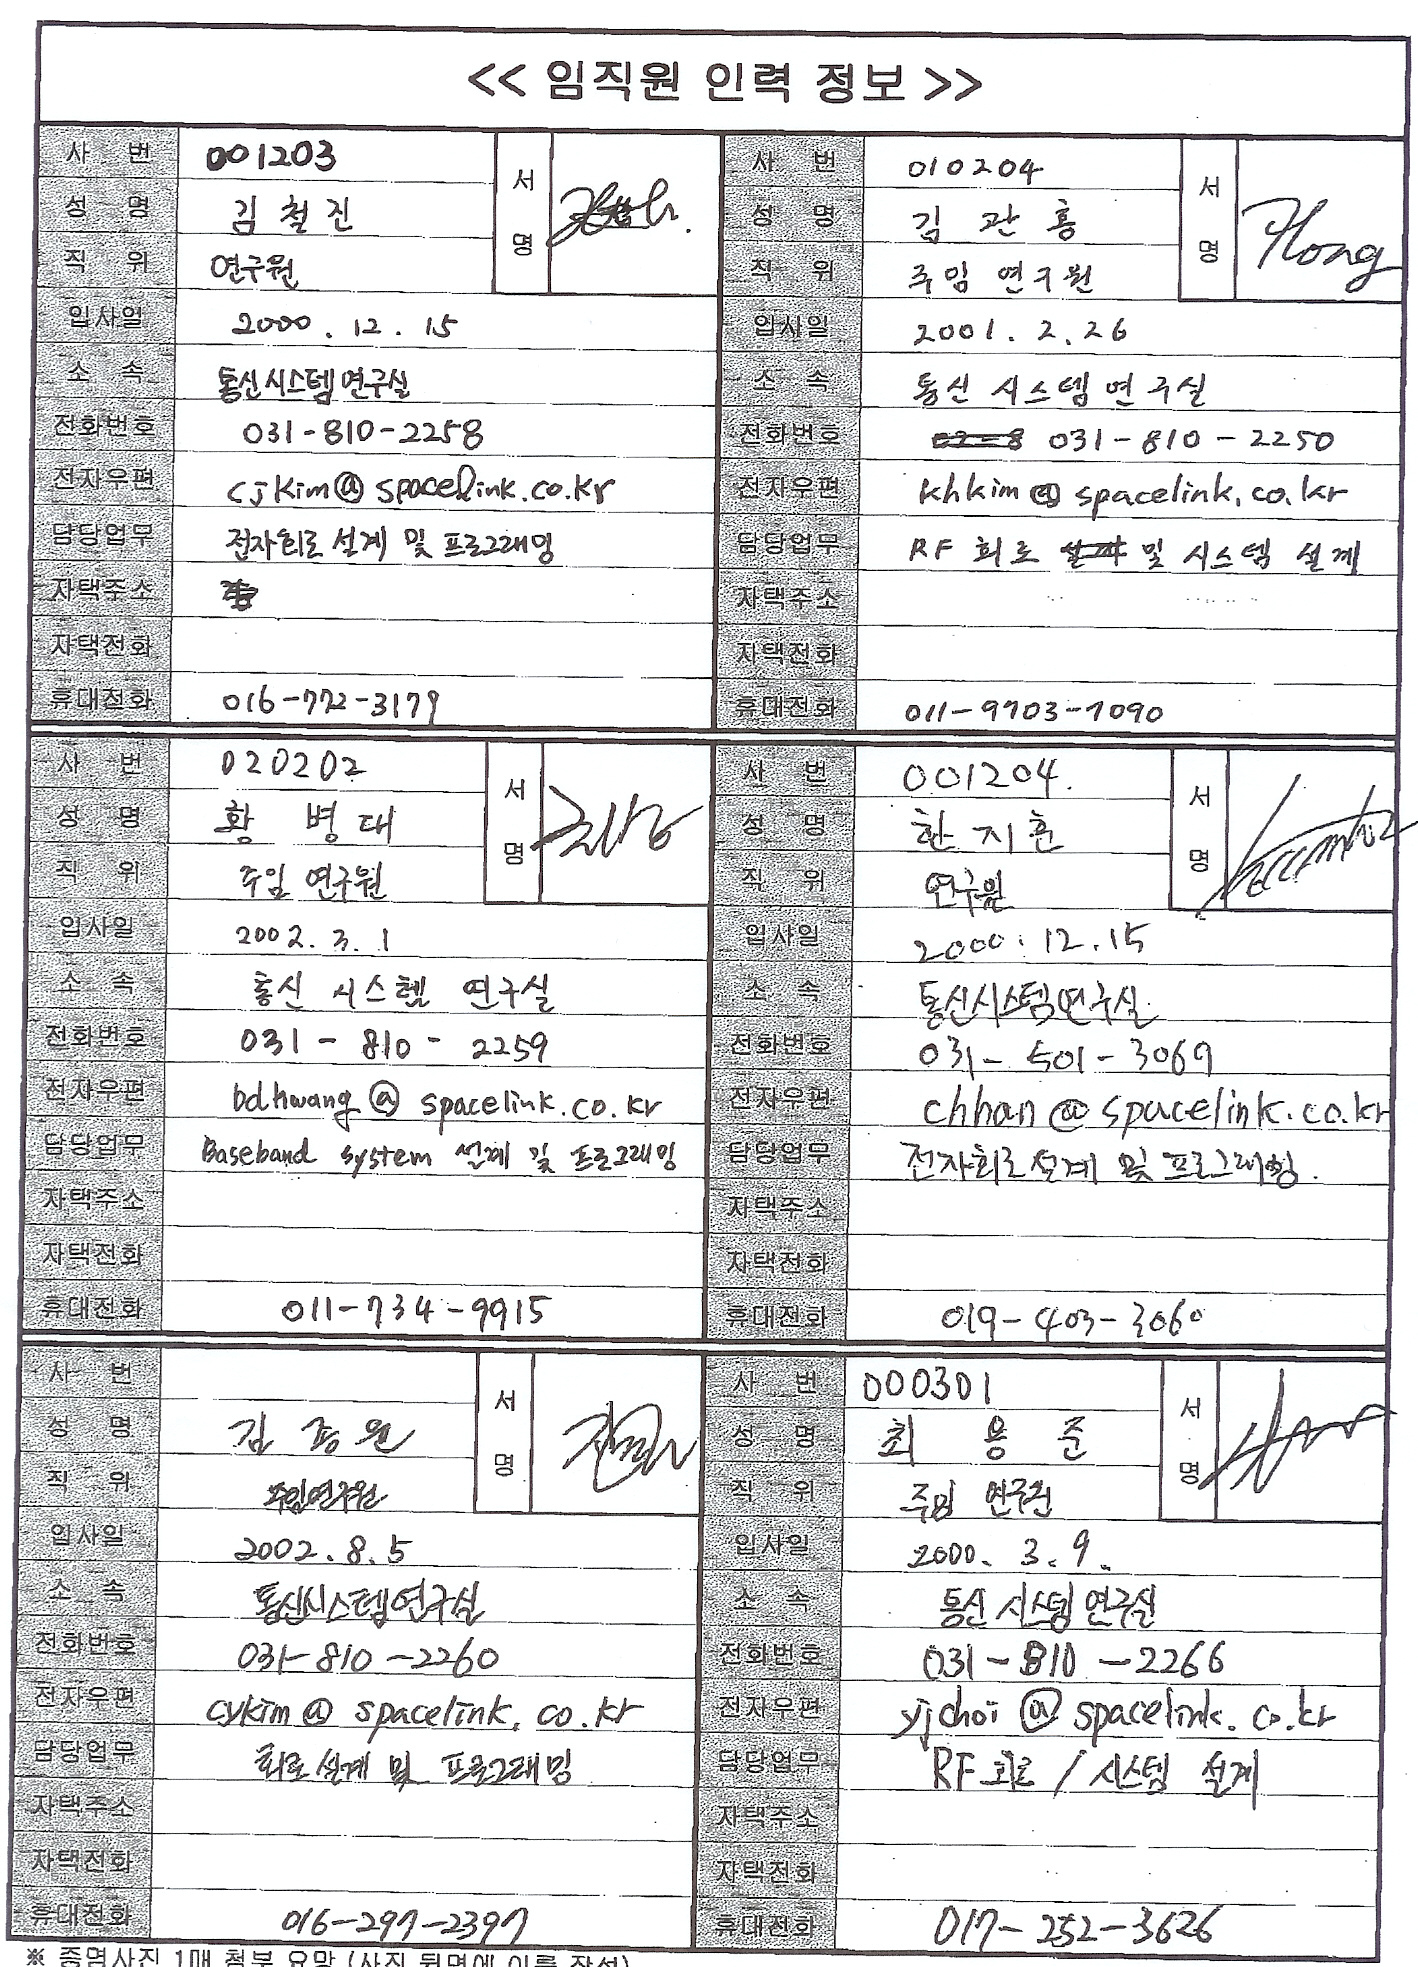 << 임직원 인력 정보 >>
사 번 001203 서명
성 명 김철진
직 위 연구원
입사일 2000.12.15
소 속 통신시스템연구실
전화번호 031-810-2258
전자우편 cjkim@spacelink.co.kr
담당업무 전자회로 설계 및 프로그래밍
자택주소
자택전화
휴대전화 016-772-3179
사 번 010204 서명
성 명 김관홍
직 위 주임 연구원
입사일 2001.2.26
소 속 통신 시스템 연구실
전화번호 031-810-2250
전자우편 khkim@spacelink.co.kr
담당업무 RF 회로 및 시스템 설계
자택주소
자택전화
휴대전화 011-9703-7090
사 번 020202 서명
성 명 황병대
직 위 주임 연구원
입사일 2002.3.1
소 속 통신 시스템 연구실
전화번호 031-810-2259
전자우편 bdhwang@spacelink.co.kr
담당업무 Baseband system 설계 및 프로그래밍
자택주소
자택전화
휴대전화 011-734-9915
사 번 001204. 서명
성 명 한지훈
직 위 연구원
입사일 2000.12.15
소 속 통신시스템연구실
전화번호 031-501-3069
전자우편 chhan@spacelink.co.kr
담당업무 전자회로설계 및 프로그래밍.
자택주소
자택전화
휴대전화 019-403-3060
사 번 서명
성 명 김
직 위 주임연구원
입사일 2002.8.5
소 속 통신시스템연구실
전화번호 031-810-2260
전자우편 cykim@spacelink.co.kr
담당업무 회로설계 및 프로그래밍
자택주소
자택전화
휴대전화 016-297-2397
사 번 000301 서명
성 명 최용준
직 위 주임 연구원
입사일 2000.3.9.
소 속 통신 시스템 연구실
전화번호 031-810-2266
전자우편 yjchoi@spacelink.co.kr
담당업무 RF 회로 / 시스템 설계
자택주소
자택전화
휴대전화 017-252-3626
※ 증명사진 1매 첨부 요망 (사진 뒷면에 이름 작성)